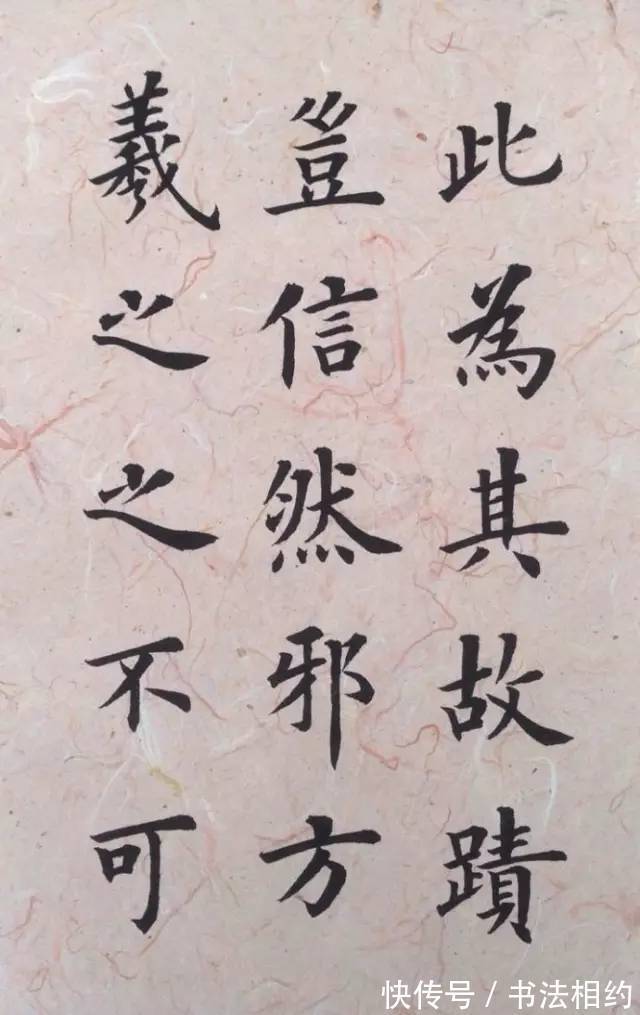 此為其故蹟
豈信然邪方
羲之之不可
快传号 / 书法相约